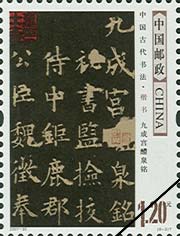 中国邮政
CHINA
中国古代书法·楷书
九成宫醴泉铭
九成宮泉銘
秘書監撿挍
侍中鉅鹿郡
公臣魏徵奉
1.20元